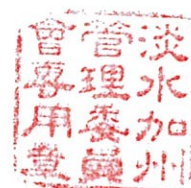 淡水加州
管理委員
會專用章